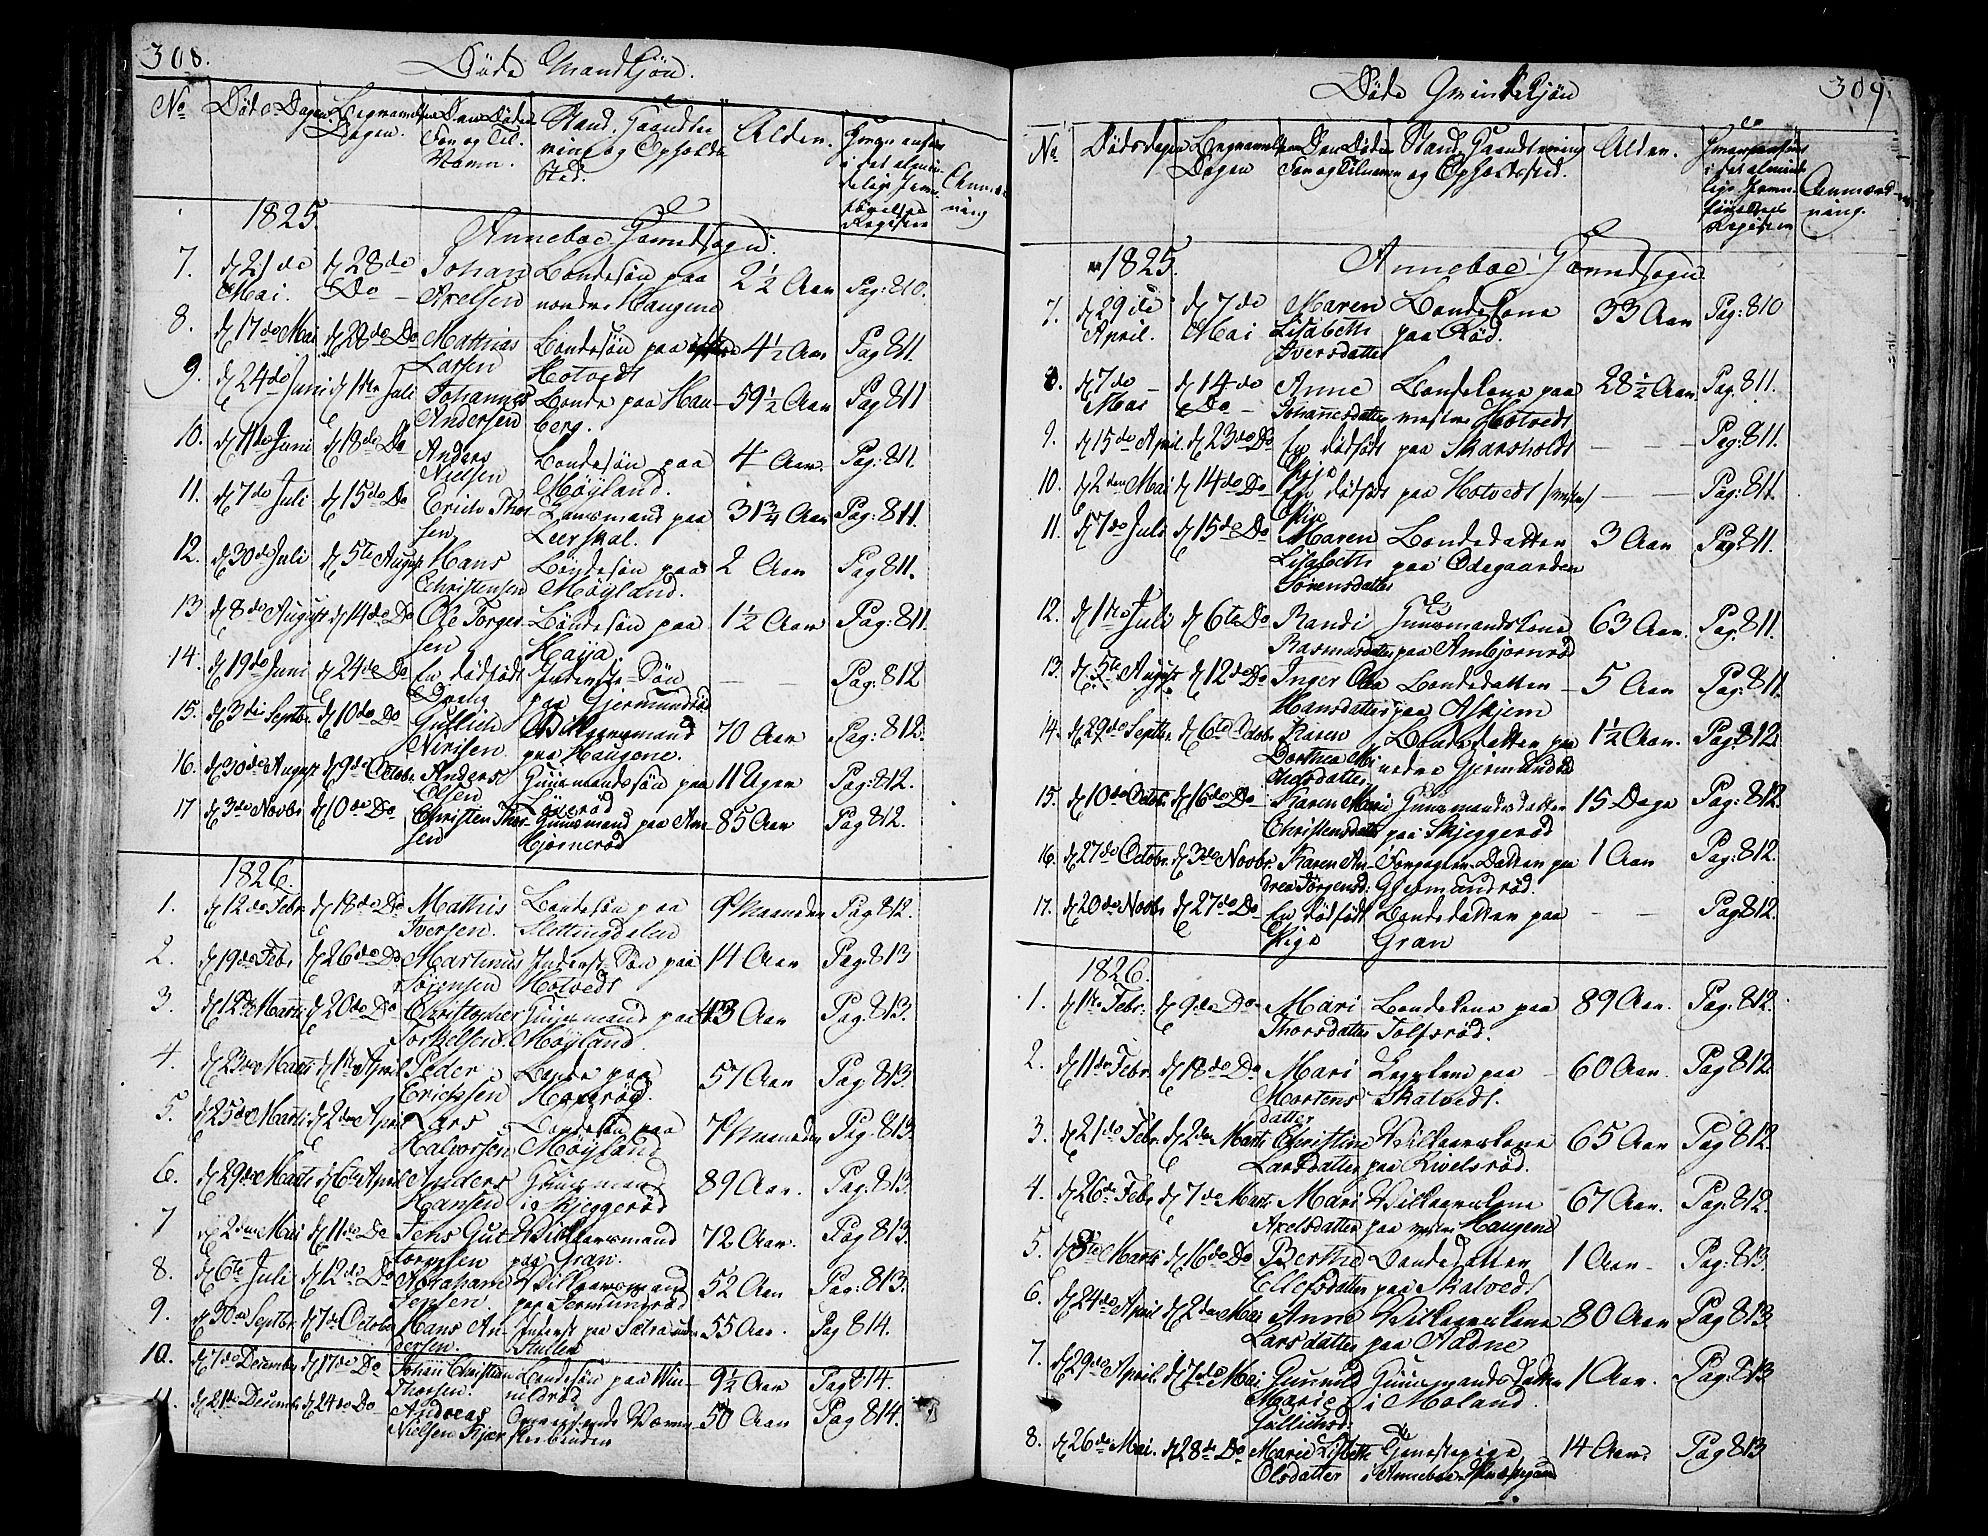 308.
Døde Mandkjøn.
No Døds Dagen. Begravelses Dagen. Den Dødes For og Til Navn. Stand, Haandtering og Opholds Sted. Alder. Anmærkning
1825. Annebøe Hovedsogn.
7. d 21de Mai. d 28de Do Johan Axelsen Bondesøn paa nordre Haugene 2½ Aar Pag: 810.
8. d 17de Mai d 28de Do Mathias Larsen Bondesøn paa Hotvedt 4½ Aar Pag 811.
9. d 24de Juni d 1ste Juli Johannes Andersen Bonde paa Hauberg. 59½ Aar Pag 811
10. d 11de Juni d 18de Do Anders Nielsen Bondesøn paa Møyland. 4 Aar. Pag: 811.
11. d 7de Juli d 15de Do Erich Thorsen paa 31¾ Aar Pag: 811.
12. d 30de Juli d 5te August Hans Christensen Bondesøn paa Møyland. 2 Aar Pag 811.
13 d 8de August d 14de Do Ole Torgersen Bondesøn paa Haija. 1½ Aar Pag: 811.
14. d 19de Juni d 24de Do En dødfødt Dreng Inderst-Søn paa Gjermundrød — — Pag: 812
15. d 3die Septbr. d 10de Do Gullich Nirisen Vilkaarsmand paa Haugene. 70 Aar Pag: 812.
16. d 30de August d 9de Octobr. Anders Olsen Huusmandssøn paa 11 Uger Pag: 812.
17 d 3de Novbr d 10de Do Christen Thorsen Huusmand paa Ambjørnrød 85 Aar Pag 812.
1826.
1. d 12de Febr. d 18de Do Mathis Iversen. Bondesøn paa Slettingdalen 9 Maaneder Pag 812.
2. d 19de Febr d 26de Do Martinus Sørensen Inderst-Søn paa Hotvedt 14 Aar Pag: 813
3. d 12de Marti d 20de Do Christopher Torkelsen. Huusmand paa Møyland 43 Aar Pag: 813.
4. d 23de Marti d 1ste April Peder Ericksen Bonde paa 57 Aar Pag 813.
5. d 25de Marti d 2den April Lars Halvorsen Bondesøn paa Møyland 7 Maaneder Pag: 813.
6. d 29de Marti d 6te April Anders Hansen Huusmand i Skjeggerød 89 Aar. Pag. 813.
7 d 2den Mai d 11de Do Jens Guttormsen Vilkaarsmand paa Gran. 72 Aar. Pag 813.
8. d 6te Juli d 12de Do Abraham Jensen. Vilkaarsmand paa 52 Aar Pag: 813.
9. d 30de Septbr. d 7de October Hans Andersen. Inderst paa 55 Aar. Pag 814.
10. d 7de Decembr d 17de Do Johan Christian Thorsen. Bondesøn paa 9½ Aar Pag 814.
11. d 21de Decembr d 24de Do Andreas Nielsen Kjær 50 Aar Pag 814.
309.
Døde Qvindekjøn
No. Dødsdagen Begravelses Dagen Den Dødes For og Tilnavn Stand, Haandtering og Opholdssted. Alder. Anmærkning.
1825. Annebøe Hovedsogn
7. d 29de April. d 7de Mai Maren Lisabeth Iversdatter Bondekone paa Rød. 33 Aar Pag: 810
8. d 7de Mai d 14de Do Anne Johannesdatter Bondekone paa vestre Hotvedt 28½ Aar Pag. 811.
9. d 15de April d 23de Do En dødfødt Pige paa Skarsholdt — — Pag: 811.
10. d 2den Mai d 14de Do En dødfødt Pige paa Hotvedt — — Pag: 811.
11. d 7de Juli d 15de Do Maren Lisabeth Sørensdatter Bondedatter paa Ødegaarden 3 Aar Pag: 811.
12. d 1ste Juli d 6te Do Randi Rasmusdatter Huusmandskone paa Ambjørnrød 63 Aar. Pag. 811.
13. d 5te August. d 12de Do Inger Olea Hansdatter Bondedatter paa Askjem 5 Aar Pag: 811.
14. d 29de Septbr. d 6te Octobr. Karen Dorthea Mathisdatter Bondedatter paa nedre Gjermundrød 1½ Aar. Pag: 812.
15. d 10de Octobr. d 16de Do Karen Marie Christensdatter Huusmandsdatter paa Skjeggerød 15 Dage Pag: 812.
16. d 27de Octobr. d 3de Novbr. Karen Andrea Jørgensd: Forpagter-Datter paa Gjermundrød. 1 Aar Pag: 812.
17. d 20de Novbr d 27de Do En dødfødt Pige Bondedatter paa Gran — — Pag 812.
1826.
1. d 1ste Febr. d 9de Do Mari Thorsdatter Bondekone paa Tolfsrød. 89 Aar. Pag: 812.
2. d 11de Febr. d 18de Do Mari Mortensdatter Leggekone paa Skalvedt. 60 Aar. Pag 812.
3. d 21de Febr. d 2den Marti Christine Larsdatter Vilkaarskone paa Rivelsrød. 65 Aar Pag 812.
4. d 26de Febr d 7de Marti Mari Axelsdatter Vilkaarskone paa vestre Haugene 67 Aar. Pag: 812.
5. d 8de Marti d 16de Do Berthe Ellefsdatter Bondedatter paa Skalvedt 1 Aar Pag: 813.
6. d 24de April d 2den Mai Anne Larsdatter Vilkaarskone paa Aadne 80 Aar Pag 813.
7. d 29de April. d 7de Mai Gunnild Marie Gullichsd: Huusmands datter i Moland. 1 Aar. Pag: 813
8. d 26de Mai. d 28de Do Marie Lisbeth Olsdatter Tjenestepige i Annebøe Præstegaard 14 Aar. Pag 813